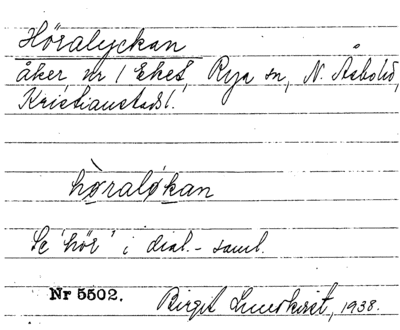 Höralyckan
åker, nr 1 Eket, Rya sn, N. Åsbohd,
Kristianstads l.
hø̀raløkan
Se "hör" i dial.-saml.
Nr 5502.
Birgit Lundkvist, 1938.